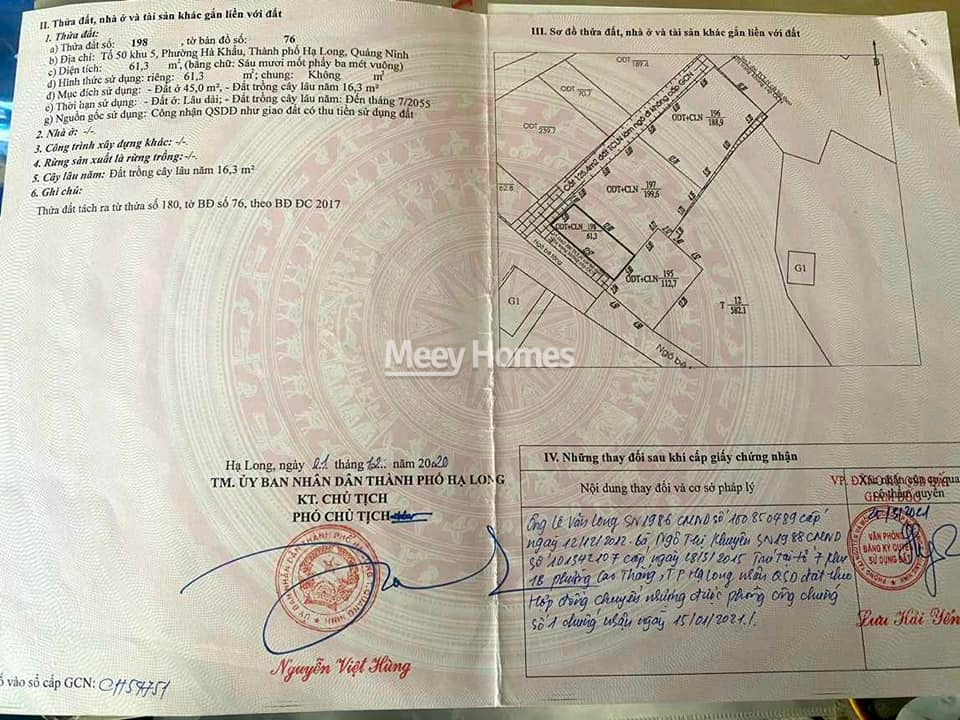 II. Thửa đất, nhà ở và tài sản khác gắn liền với đất
1. Thửa đất:
a) Thửa đất số: 198 , tờ bản đồ số: 76
b) Địa chỉ: Tổ 50 khu 5, Phường Hà Khẩu, Thành phố Hạ Long, Quảng Ninh
c) Diện tích: 61,3 m², (bằng chữ: Sáu mươi mốt phẩy ba mét vuông)
d) Hình thức sử dụng: riêng: 61,3 m²; chung: Không m²
đ) Mục đích sử dụng: - Đất ở 45,0 m², - Đất trồng cây lâu năm 16,3 m²
e) Thời hạn sử dụng: - Đất ở: Lâu dài; - Đất trồng cây lâu năm: Đến tháng 7/2055
g) Nguồn gốc sử dụng: Công nhận QSDĐ như giao đất có thu tiền sử dụng đất
2. Nhà ở: -/-
3. Công trình xây dựng khác: -/-
4. Rừng sản xuất là rừng trồng: -/-
5. Cây lâu năm: Đất trồng cây lâu năm 16,3 m²
6. Ghi chú:
Thửa đất tách ra từ thửa số 180, tờ BĐ số 76, theo BĐ ĐC 2017
Hạ Long, ngày 21 tháng 12 năm 2020
TM. ỦY BAN NHÂN DÂN THÀNH PHỐ HẠ LONG
KT. CHỦ TỊCH
PHÓ CHỦ TỊCH
Nguyễn Việt Hùng
ố vào sổ cấp GCN: CH54751
III. Sơ đồ thửa đất, nhà ở và tài sản khác gắn liền với đất
B
ODT
189.4
ODT
70.7
ODT
239.7
62.8
Cắt 125,4m2 đất TCLN làm ngõ đi không cấp GCN
ODT+CLN 196
188,9
ODT+CLN 197
199,6
ODT+CLN 198
61,3
ODT+CLN 195
112,7
Ngõ bê tông
Ngõ bê
G1
G1
T 12
582.1
Meey Homes
IV. Những thay đổi sau khi cấp giấy chứng nhận
Nội dung thay đổi và cơ sở pháp lý
Xác nhận của cơ quan
có thẩm quyền
Ông Lê Văn Long SN 1986 CMND số 100850489 cấp
ngày 12/12/2012. bà Ngô Thị Khuyên SN 1988 CMND
số 101542107 cấp ngày 28/5/2015 Trú tại tổ 7 khu
1B phường Cao Thắng, TP Hạ Long nhận QSD đất theo
Hợp đồng chuyển nhượng được phòng công chứng
số 1 chứng nhận ngày 15/01/2021./.
VĂN PHÒNG
ĐĂNG KÝ QUYỀN
SỬ DỤNG ĐẤT
Lưu Hải Yến